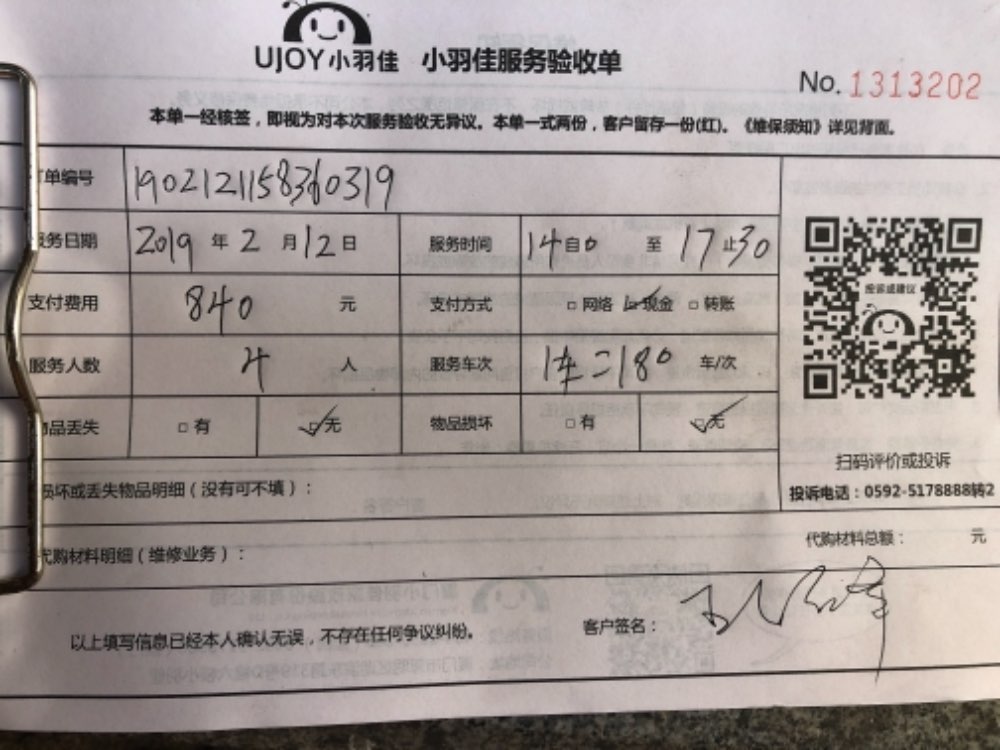 UJOY小羽佳 小羽佳服务验收单
No. 1313202
本单一经核签，即视为对本次服务验收无异议。本单一式两份，客户留存一份(红)。《维保须知》详见背面。
单编号 1902121158360319
务日期 2019 年 2 月 12 日 服务时间 14自0 至 17止30
支付费用 840 元 支付方式 □网络 ☑现金 □转账
服务人数 4 人 服务车次 180 车/次
物品丢失 □有 ☑无 物品损坏 □有 ☑无
投诉或建议
扫码评价或投诉
投诉电话：0592-5178888转2
损坏或丢失物品明细（没有可不填）：
代购材料明细（维修业务）：
代购材料总额： 元
以上填写信息已经本人确认无误，不存在任何争议纠纷。 客户签名：